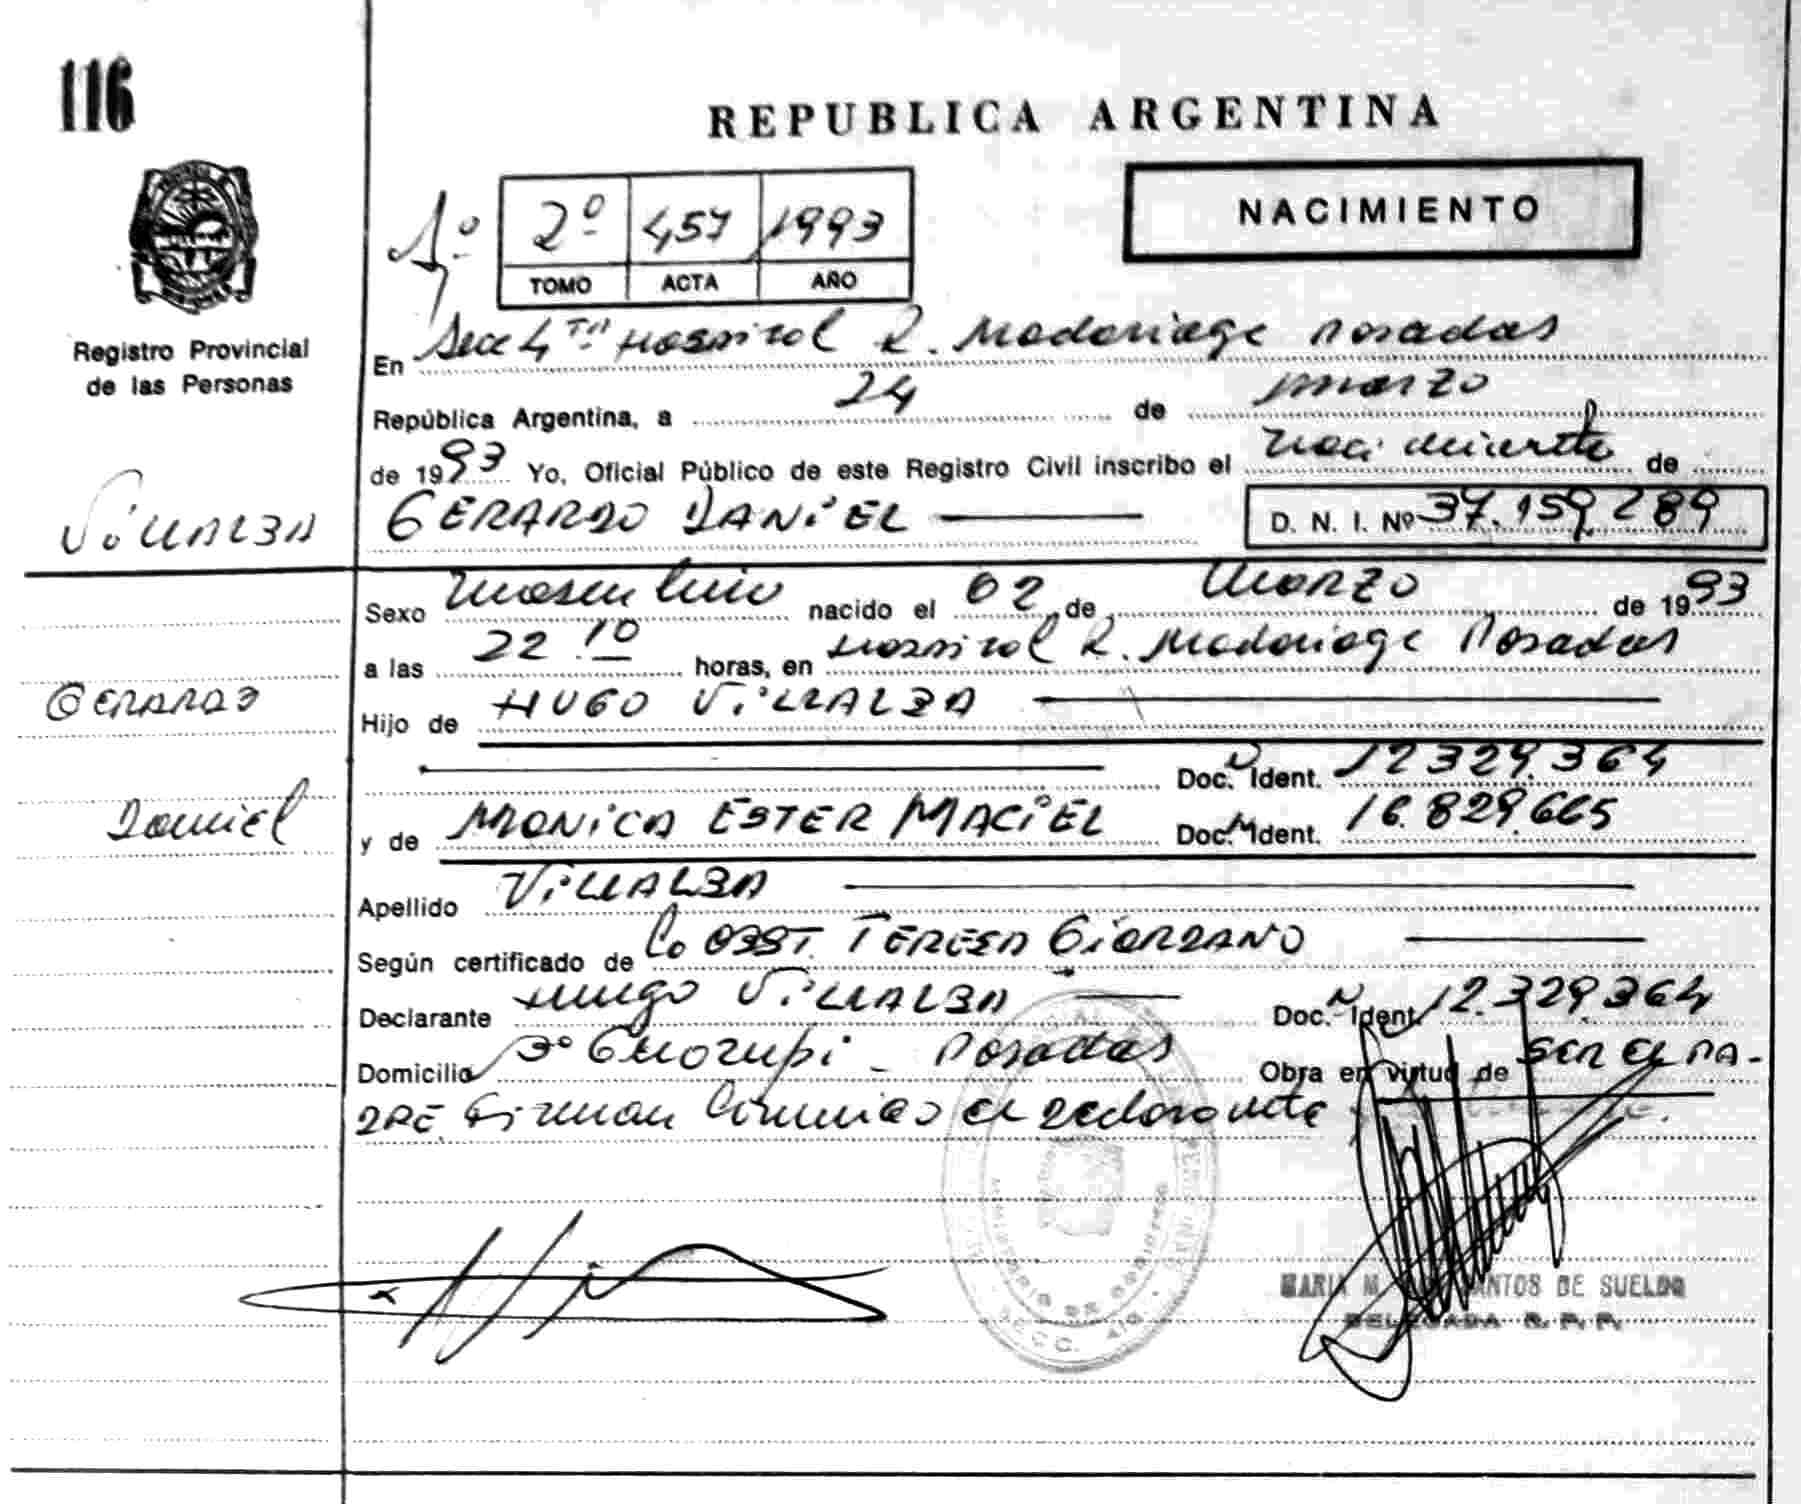 116
REPUBLICA ARGENTINA
NACIMIENTO
1º 2º 457 1993
TOMO ACTA AÑO
Registro Provincial
de las Personas
En Secc 4ta Hospital R. Madariaga Posadas
República Argentina, a 24 de marzo
de 1993 Yo, Oficial Público de este Registro Civil inscribo el nacimiento de
VILLALBA
GERARDO DANIEL D. N. I. Nº 37.159289
Sexo masculino nacido el 02 de marzo de 1993
a las 22.10 horas, en Hospital R. Madariaga Posadas
GERARDO
Hijo de HUGO VILLALBA
Doc. N Ident. 12329.364
Daniel
y de MONICA ESTER MACIEL Doc. N Ident. 16.829.665
Apellido VILLALBA
Según certificado de Co OBST. TERESA GIORDANO
Declarante Hugo VILLALBA Doc. N Ident. 12.329.364
Domicilio Bº Guazupi - Posadas Obra en virtud de SER EL PA-
DRE Firman Conmigo el declarante
MINISTERIO DE GOBIERNO
SECC. 4ta
MARIA M. SANTOS DE SUELDO
DELEGADA R. P. P.